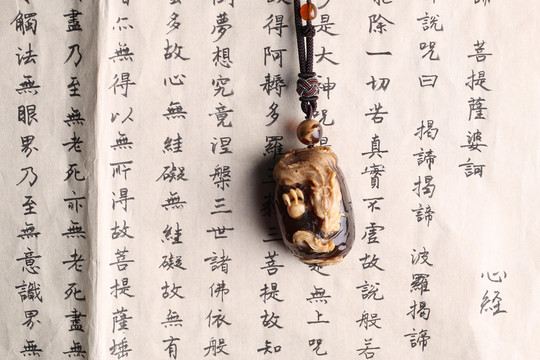 心經
諦 菩提薩婆訶
說咒曰 揭諦揭諦 波羅揭諦
能除一切苦真實不虛故說般若
是大神咒 無上咒
故得阿耨多羅 三菩提故知
倒夢想究竟涅槃三世諸佛依般
多故心無絓礙無絓礙故無有
無得以無所得故菩提薩埵
盡乃至無老死亦無老死盡無
觸法無眼界乃至無意識界無